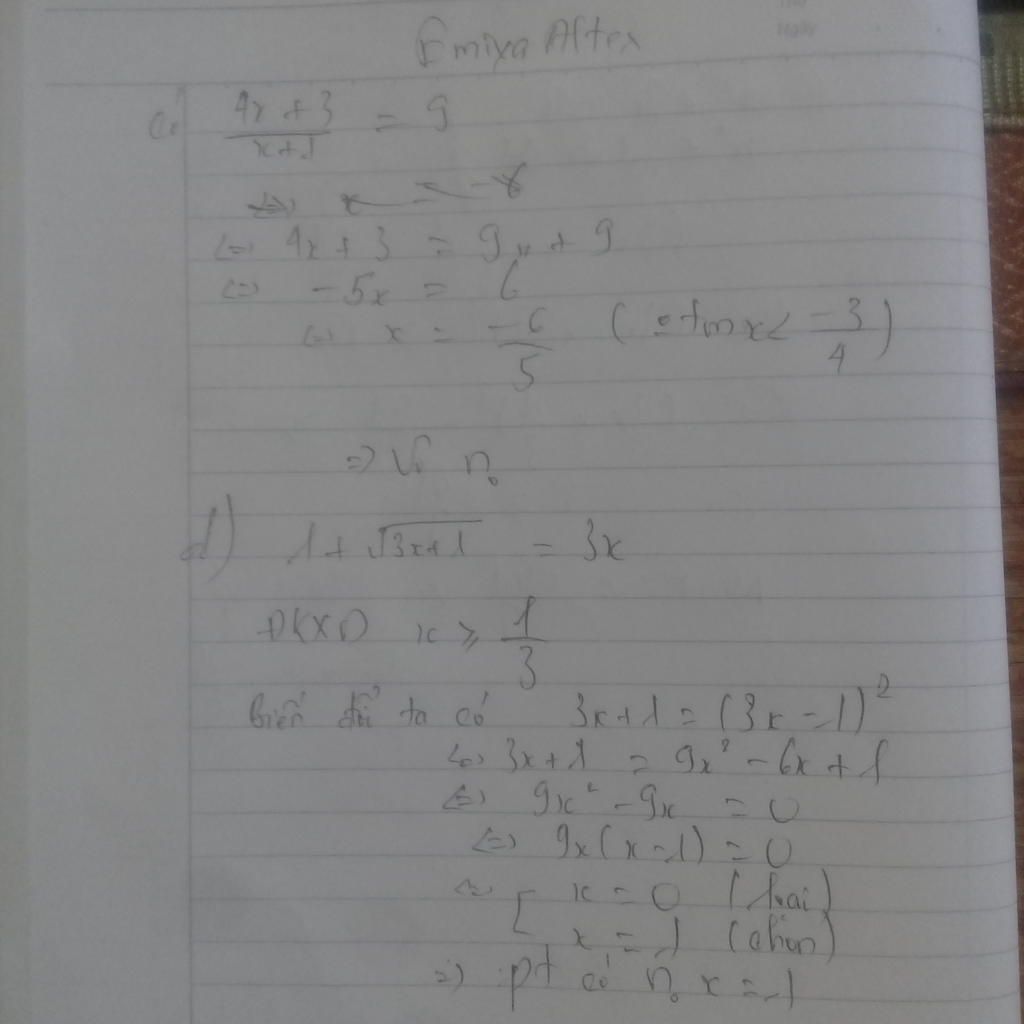 Emiya Alter
c) \frac{4x+3}{x+1} = 9
<=> 4x + 3 = 9x + 9
<=> -5x = 6
<=> x = \frac{-6}{5} ( x < \frac{-3}{4} )
=> Vô n₀
d) 1 + \sqrt{3x+1} = 3x
ĐKXĐ x ≥ \frac{1}{3}
Biến đổi ta có 3x+1 = (3x-1)^2
<=> 3x+1 = 9x^2 - 6x + 1
<=> 9x^2 - 9x = 0
<=> 9x(x-1) = 0
<=> [ x = 0 (loại)
x = 1 (chọn)
=> pt có n₀ x = 1